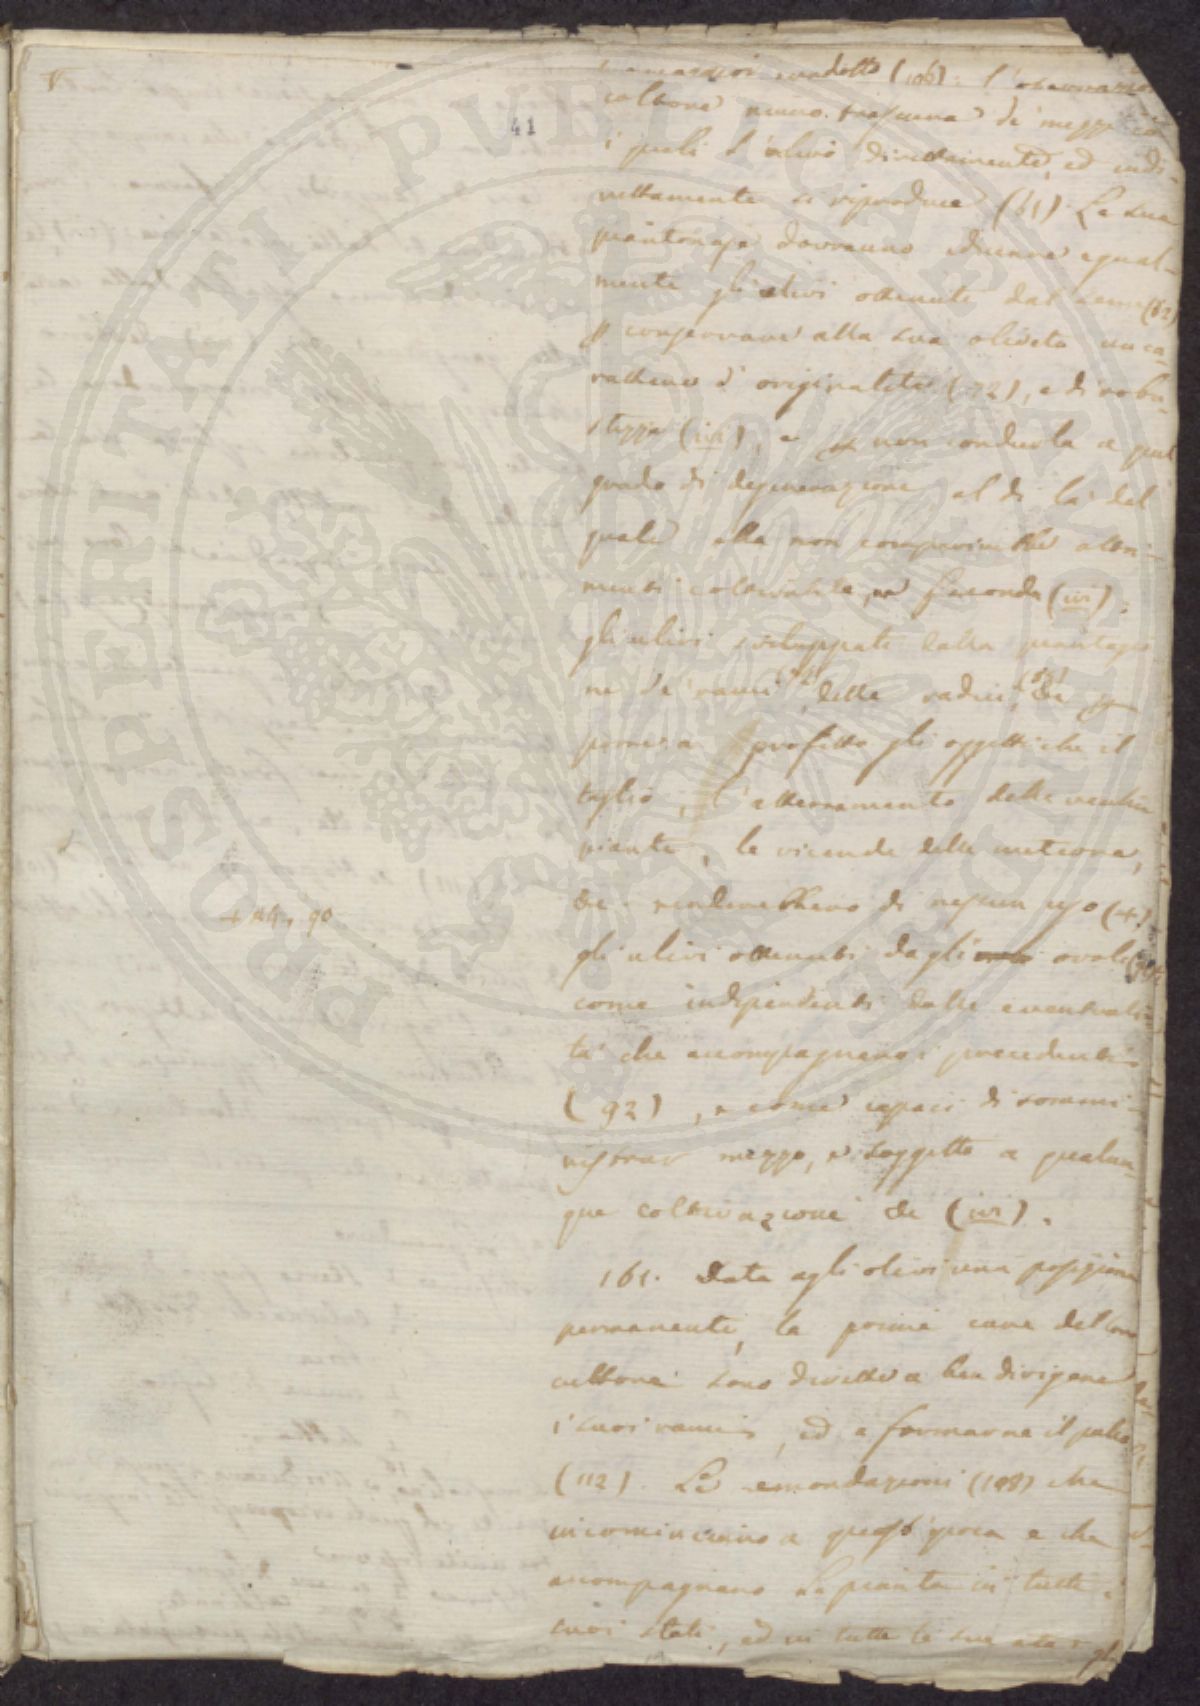 41
(106). l'osservazio
coltore niuno trascura de' mezzi
i quali l'ulivo direttamente, ed indi-
rettamente si riproduce (61). Le sue
piantonaje dovranno educare egual-
mente gli ulivi ottenuti dal seme (62)
conservare alla sua oliveto un ca-
rattere d' originalità (72), e di robu-
stezza (ivi), e non condurla a quel
grado di degenerazione al di là del
quale ella non comparirebbe altri-
menti coltivabile, e feconda (ivi).
gli ulivi sviluppati dalla piantagio
ne de' rami, delle radici,
porre a profitto gli oggetti che il
taglio, l'atterramento delle vecchie
piante, le vicende delle meteore,
renderebbero di nessun uso (+)
+ 90
gli ulivi ottenuti dagli ovoli
come indipendenti dalle eventuali
tà che accompagnano i precedenti
(92), e come capaci di sommi-
nistrar mezzo, e soggetto a qualun-
que coltivazione (ivi).
161. Data agli olivi una posizione
permanente, la prime cure del
cultore sono dirette a ben dirigere
i suoi rami, ed a formarne il palco
(112). Le emondazioni (108) che
incominciano a quest'epoca e che
accompagnano la pianta in tutti i
suoi stati, ed in tutte le sue età
PROSPERITATI PUBLICAE AUGENDAE